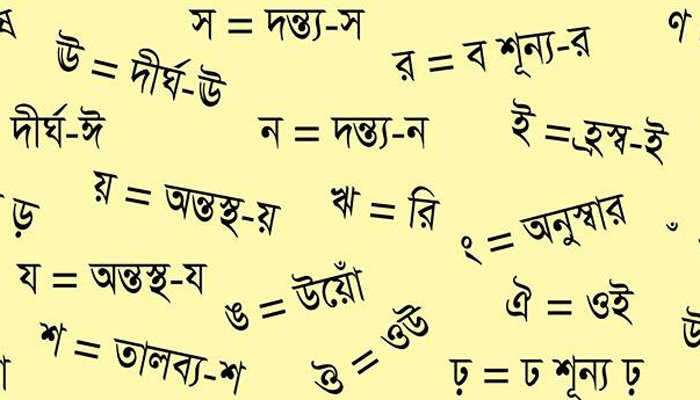 ষ
স = দন্ত্য-স
ণ
ঊ = দীর্ঘ-ঊ
র = ব শূন্য-র
দীর্ঘ-ঈ
ন = দন্ত্য-ন
ই = হ্রস্ব-ই
য় = অন্তস্থ-য়
ঋ = রি
ড়
ং = অনুস্বার
ঁ
য = অন্তস্থ-য
ঙ = উয়োঁ
ঐ = ওই
শ = তালব্য-শ
ঔ = ওউ
ঢ় = ঢ শূন্য ঢ়